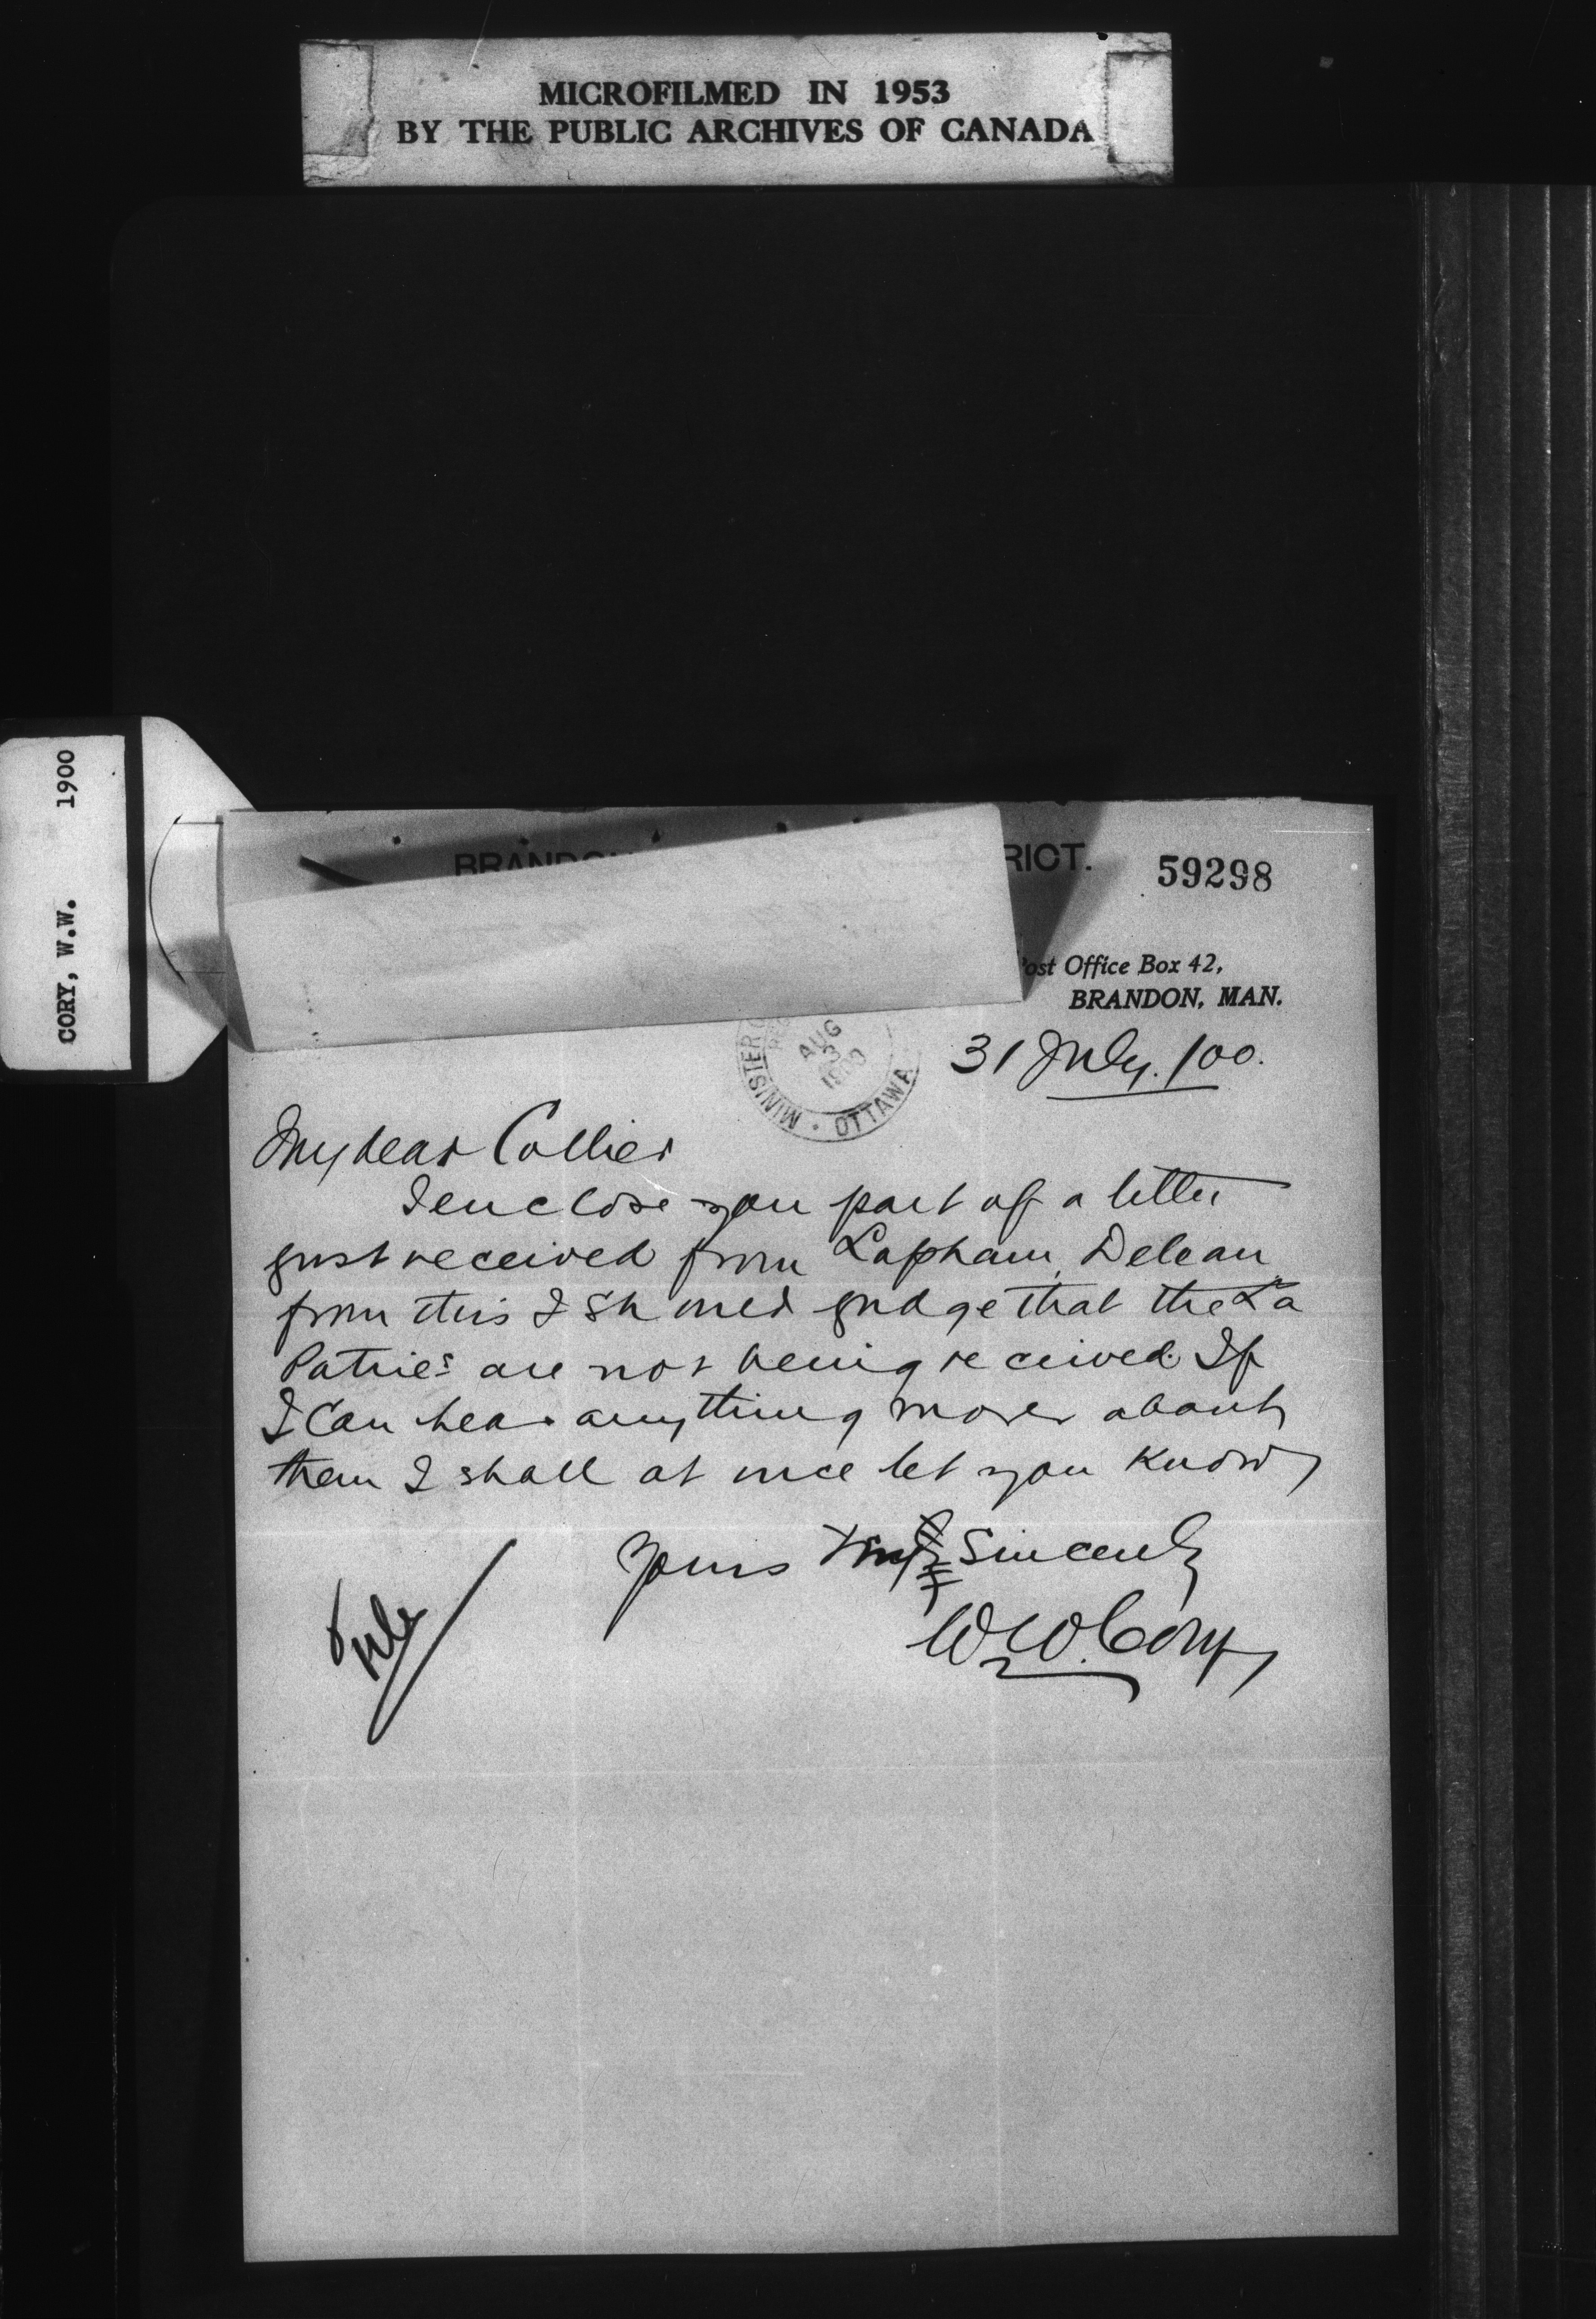 MICROFILMED IN 1953
BY THE PUBLIC ARCHIVES OF CANADA
CORY, W.W. 1900
BRANDON
RICT.
59298
Post Office Box 42,
BRANDON, MAN.
MINISTER
AUG
3
1900
OTTAWA
31 July. /00.
My dear Collier
I enclose you part of a letter
just received from Lapham, Deleau
from this I should judge that the La
Patries are not being received. If
I can hear anything more about
them I shall at once let you know
Yours Sincerely
W. W. Cory
File